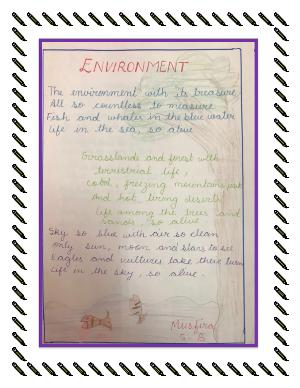 ENVIRONMENT
The environment with its treasure,
All so countless to measure
Fish and whales in the blue water
life in the sea, so alive
Grasslands and forest with
terristrial life,
cold, freezing mountains
And hot, tiring deserts
life among the trees and
sands, so alive
Sky so blue with air so clean
only sun, moon and stars to see
Eagles and vultures take their turn
Life in the sky, so alive.
Musfira
5 B